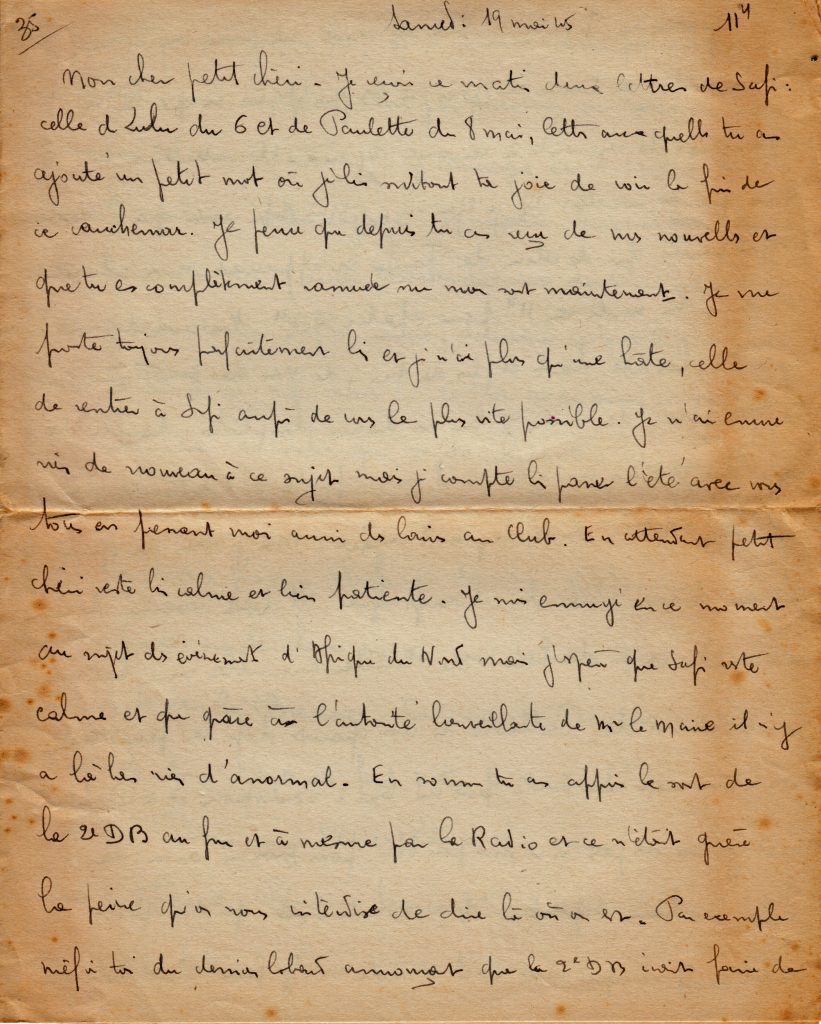 35 Samedi 19 mai 45 11H
Mon cher petit chéri. Je reçois ce matin deux lettres de Safi :
celle d Lulu du 6 et de Paulette du 8 mai, lettres auxquelles tu as
ajouté un petit mot où j'ai lu surtout ta joie de voir la fin de
ce cauchemar. Je pense que depuis tu as reçu de mes nouvelles et
que tu es complètement rassurée sur mon sort maintenant. Je me
porte toujours parfaitement bien et je n'ai plus qu'une hâte, celle
de rentrer à Safi auprès de vous le plus vite possible. Je n'ai encore
rien de nouveau à ce sujet mais je compte bien passer l'été avec vous
tous en prenant moi aussi des bains au Club. En attendant petit
chéri reste bien calme et bien patiente. Je suis ennuyé en ce moment
au sujet des événements d'Afrique du Nord mais j'espère que Safi reste
calme et que grâce à l'autorité bienveillante de Mr le Maire il n'y
a là bas rien d'anormal. En somme tu as appris le sort de
la 2e DB au fur et à mesure par la Radio et ce n'était guère
la peine qu'on nous interdise de dire là où on est. Par exemple
méfie toi du dernier bobard annonçant que la 2e DB irait faire de